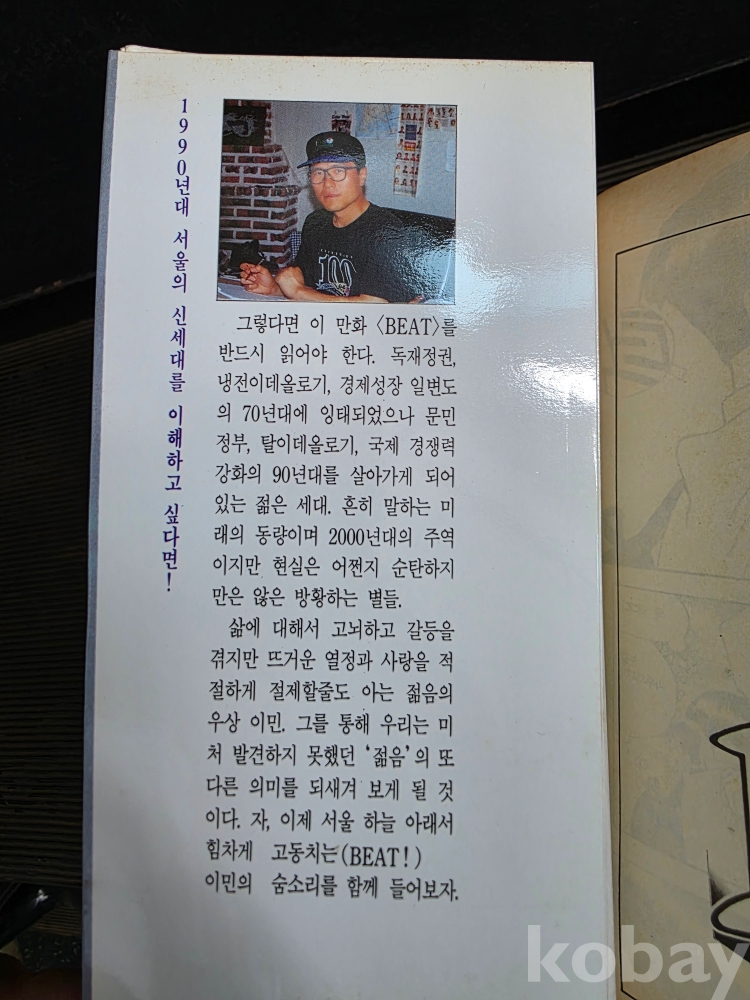 1990년대 서울의 신세대를 이해하고 싶다면!
100
그렇다면 이 만화 〈BEAT〉를
반드시 읽어야 한다. 독재정권,
냉전이데올로기, 경제성장 일변도
의 70년대에 잉태되었으나 문민
정부, 탈이데올로기, 국제 경쟁력
강화의 90년대를 살아가게 되어
있는 젊은 세대. 흔히 말하는 미
래의 동량이며 2000년대의 주역
이지만 현실은 어쩐지 순탄하지
만은 않은 방황하는 별들.
삶에 대해서 고뇌하고 갈등을
겪지만 뜨거운 열정과 사랑을 적
절하게 절제할줄도 아는 젊음의
우상 이민. 그를 통해 우리는 미
처 발견하지 못했던 ‘젊음’의 또
다른 의미를 되새겨 보게 될 것
이다. 자, 이제 서울 하늘 아래서
힘차게 고동치는(BEAT!)
이민의 숨소리를 함께 들어보자.
kobay